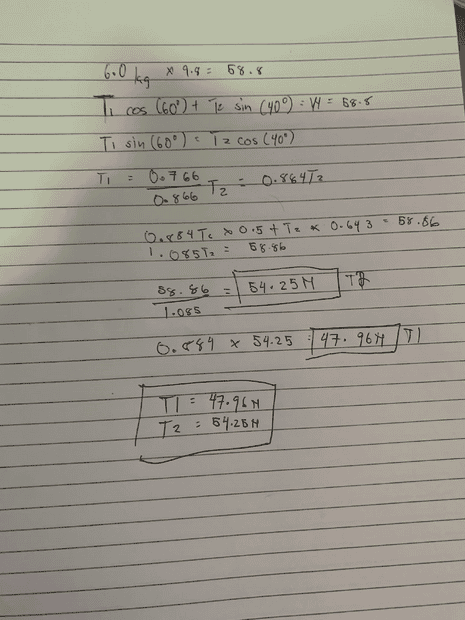 6.0 kg × 9.8 = 58.8
T1 cos (60°) + T2 sin (40°) = W = 58.8
T1 sin (60°) = T2 cos (40°)
T1 = 0.766 / 0.866 T2 = 0.884T2
0.884T2 × 0.5 + T2 × 0.643 = 58.86
1.085T2 = 58.86
58.86 / 1.085 = 54.25N T2
0.884 × 54.25 = 47.96N T1
T1 = 47.96N
T2 = 54.25N